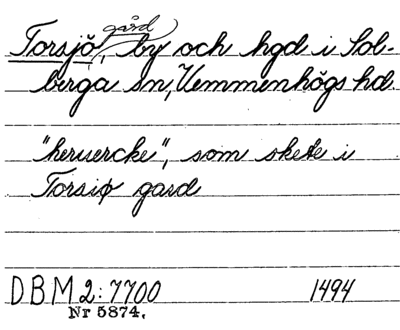 gård
Torsjö, by och hgd i Sol-
berga sn, Vemmenhögs hd.
"heruercke", som skete i
Torsiø gard
DBM 2:7700 1494
Nr 5874.